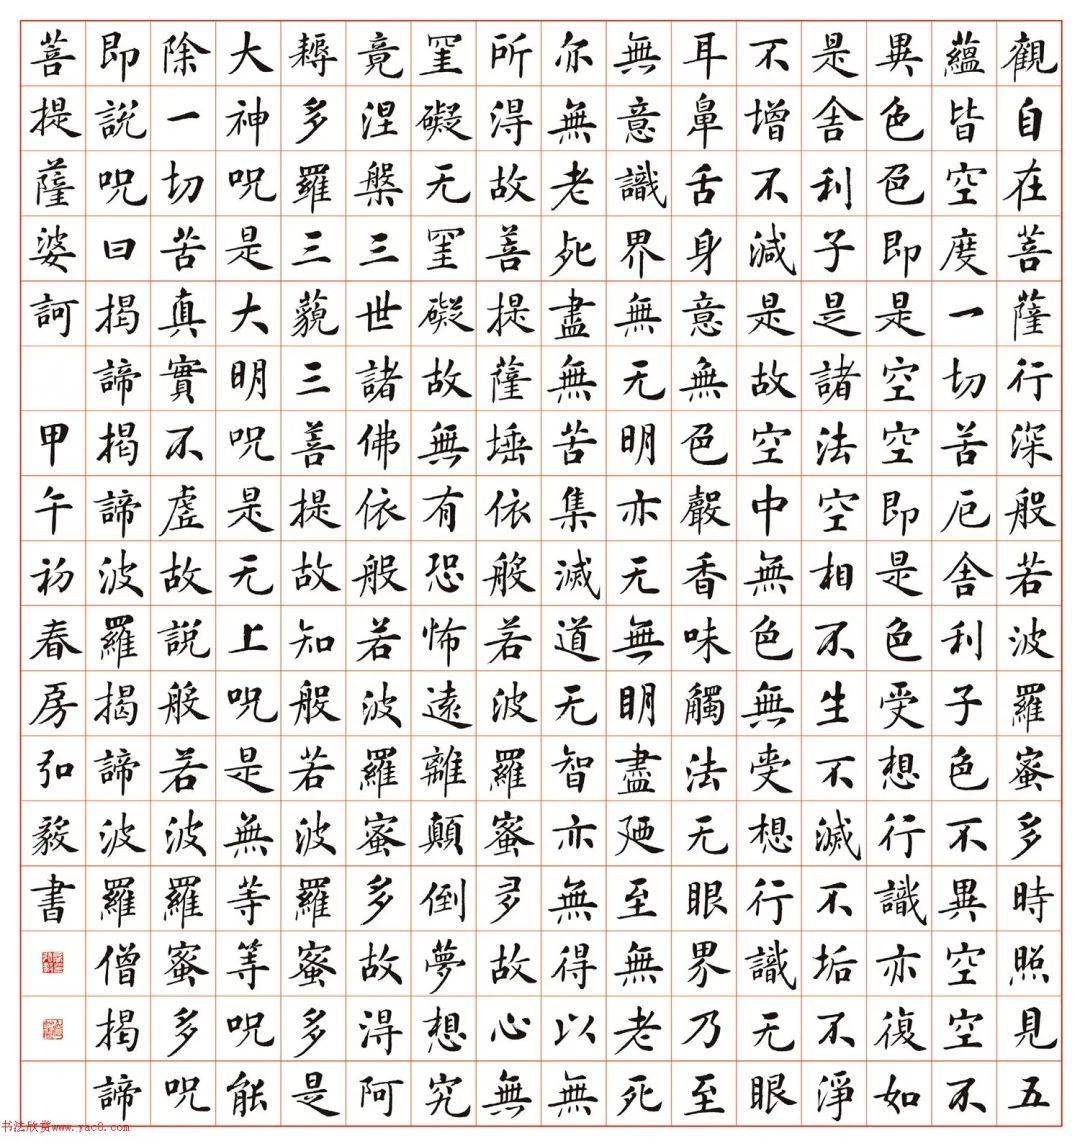 觀自在菩薩行深般若波羅蜜多時照見五
蘊皆空度一切苦厄舍利子色不異空空不
異色色即是空空即是色受想行識亦復如
是舍利子是諸法空相不生不滅不垢不淨
不增不減是故空中無色無受想行識无眼
耳鼻舌身意無色聲香味觸法无眼界乃至
無意識界無无明亦无無明盡廼至無老死
亦無老死盡無苦集滅道无智亦無得以無
所得故菩提薩埵依般若波羅蜜多故心無
罣礙无罣礙故無有恐怖遠離顛倒夢想究
竟涅槃三世諸佛依般若波羅蜜多故得阿
耨多羅三藐三菩提故知般若波羅蜜多是
大神咒是大明咒是无上咒是無等等咒能
除一切苦真實不虛故說般若波羅蜜多咒
即說咒曰揭諦揭諦波羅揭諦波羅僧揭諦
菩提薩婆訶 甲午初春房弘毅書
书法欣赏www.yac8.com